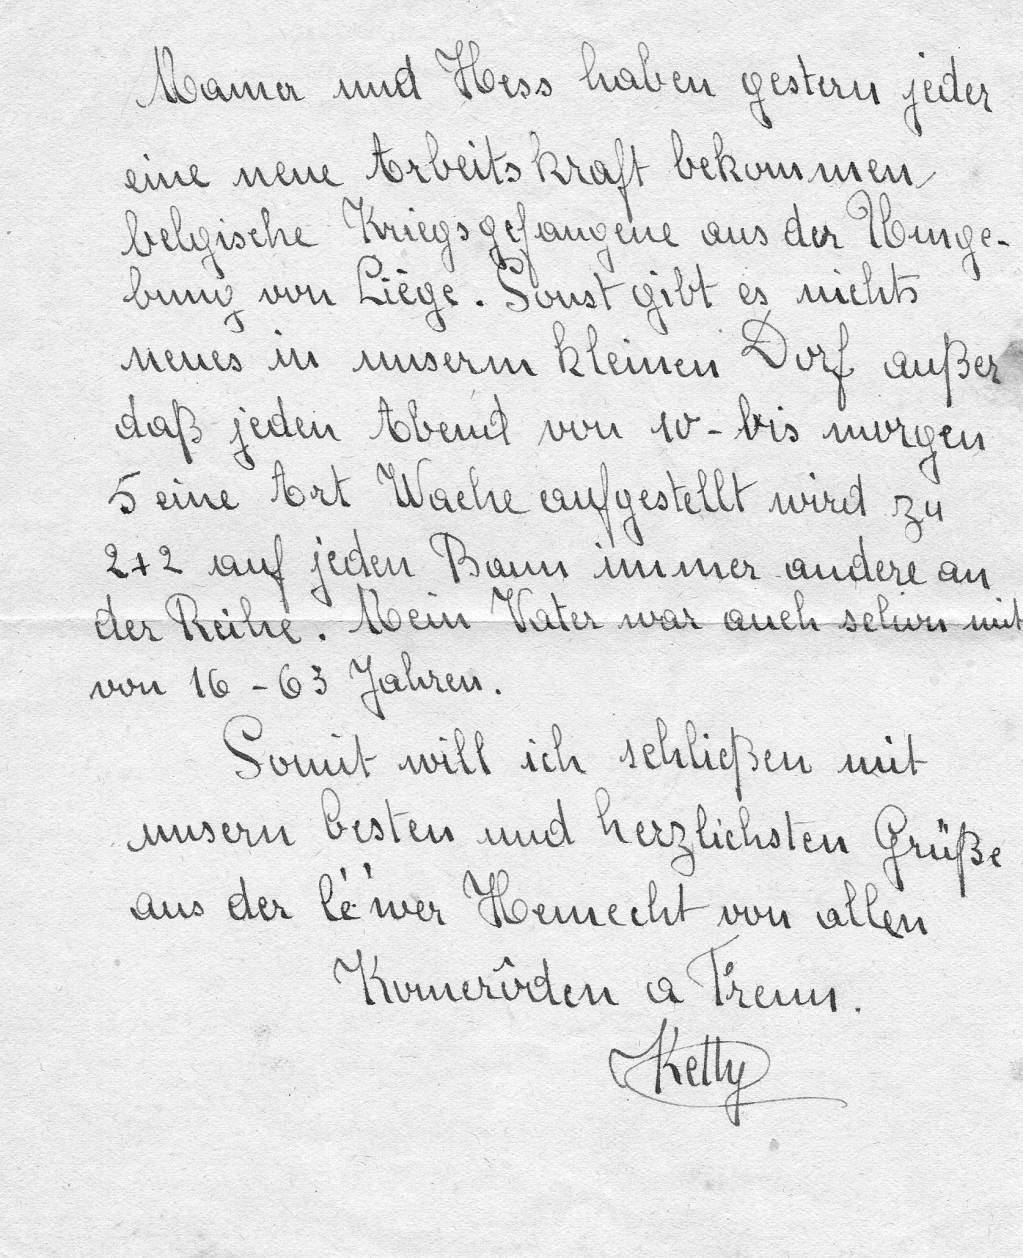 Mamer und Hess haben gestern jeder
eine neue Arbeitskraft bekommen
belgische Kriegsgefangene aus der Umge-
bung von Liège. Sonst gibt es nichts
neues in unserm kleinen Dorf außer
daß jeden Abend von 10 - bis morgen
5 eine Art Wache aufgestellt wird zu
2+2 auf jeden Bann immer andere an
der Reihe. Mein Vater war auch schon mit
von 16 - 63 Jahren.
Somit will ich schließen mit
unsern besten und herzlichsten Grüße
aus der lé'wer Hemecht von allen
Komerôden a Frenn.
Ketty